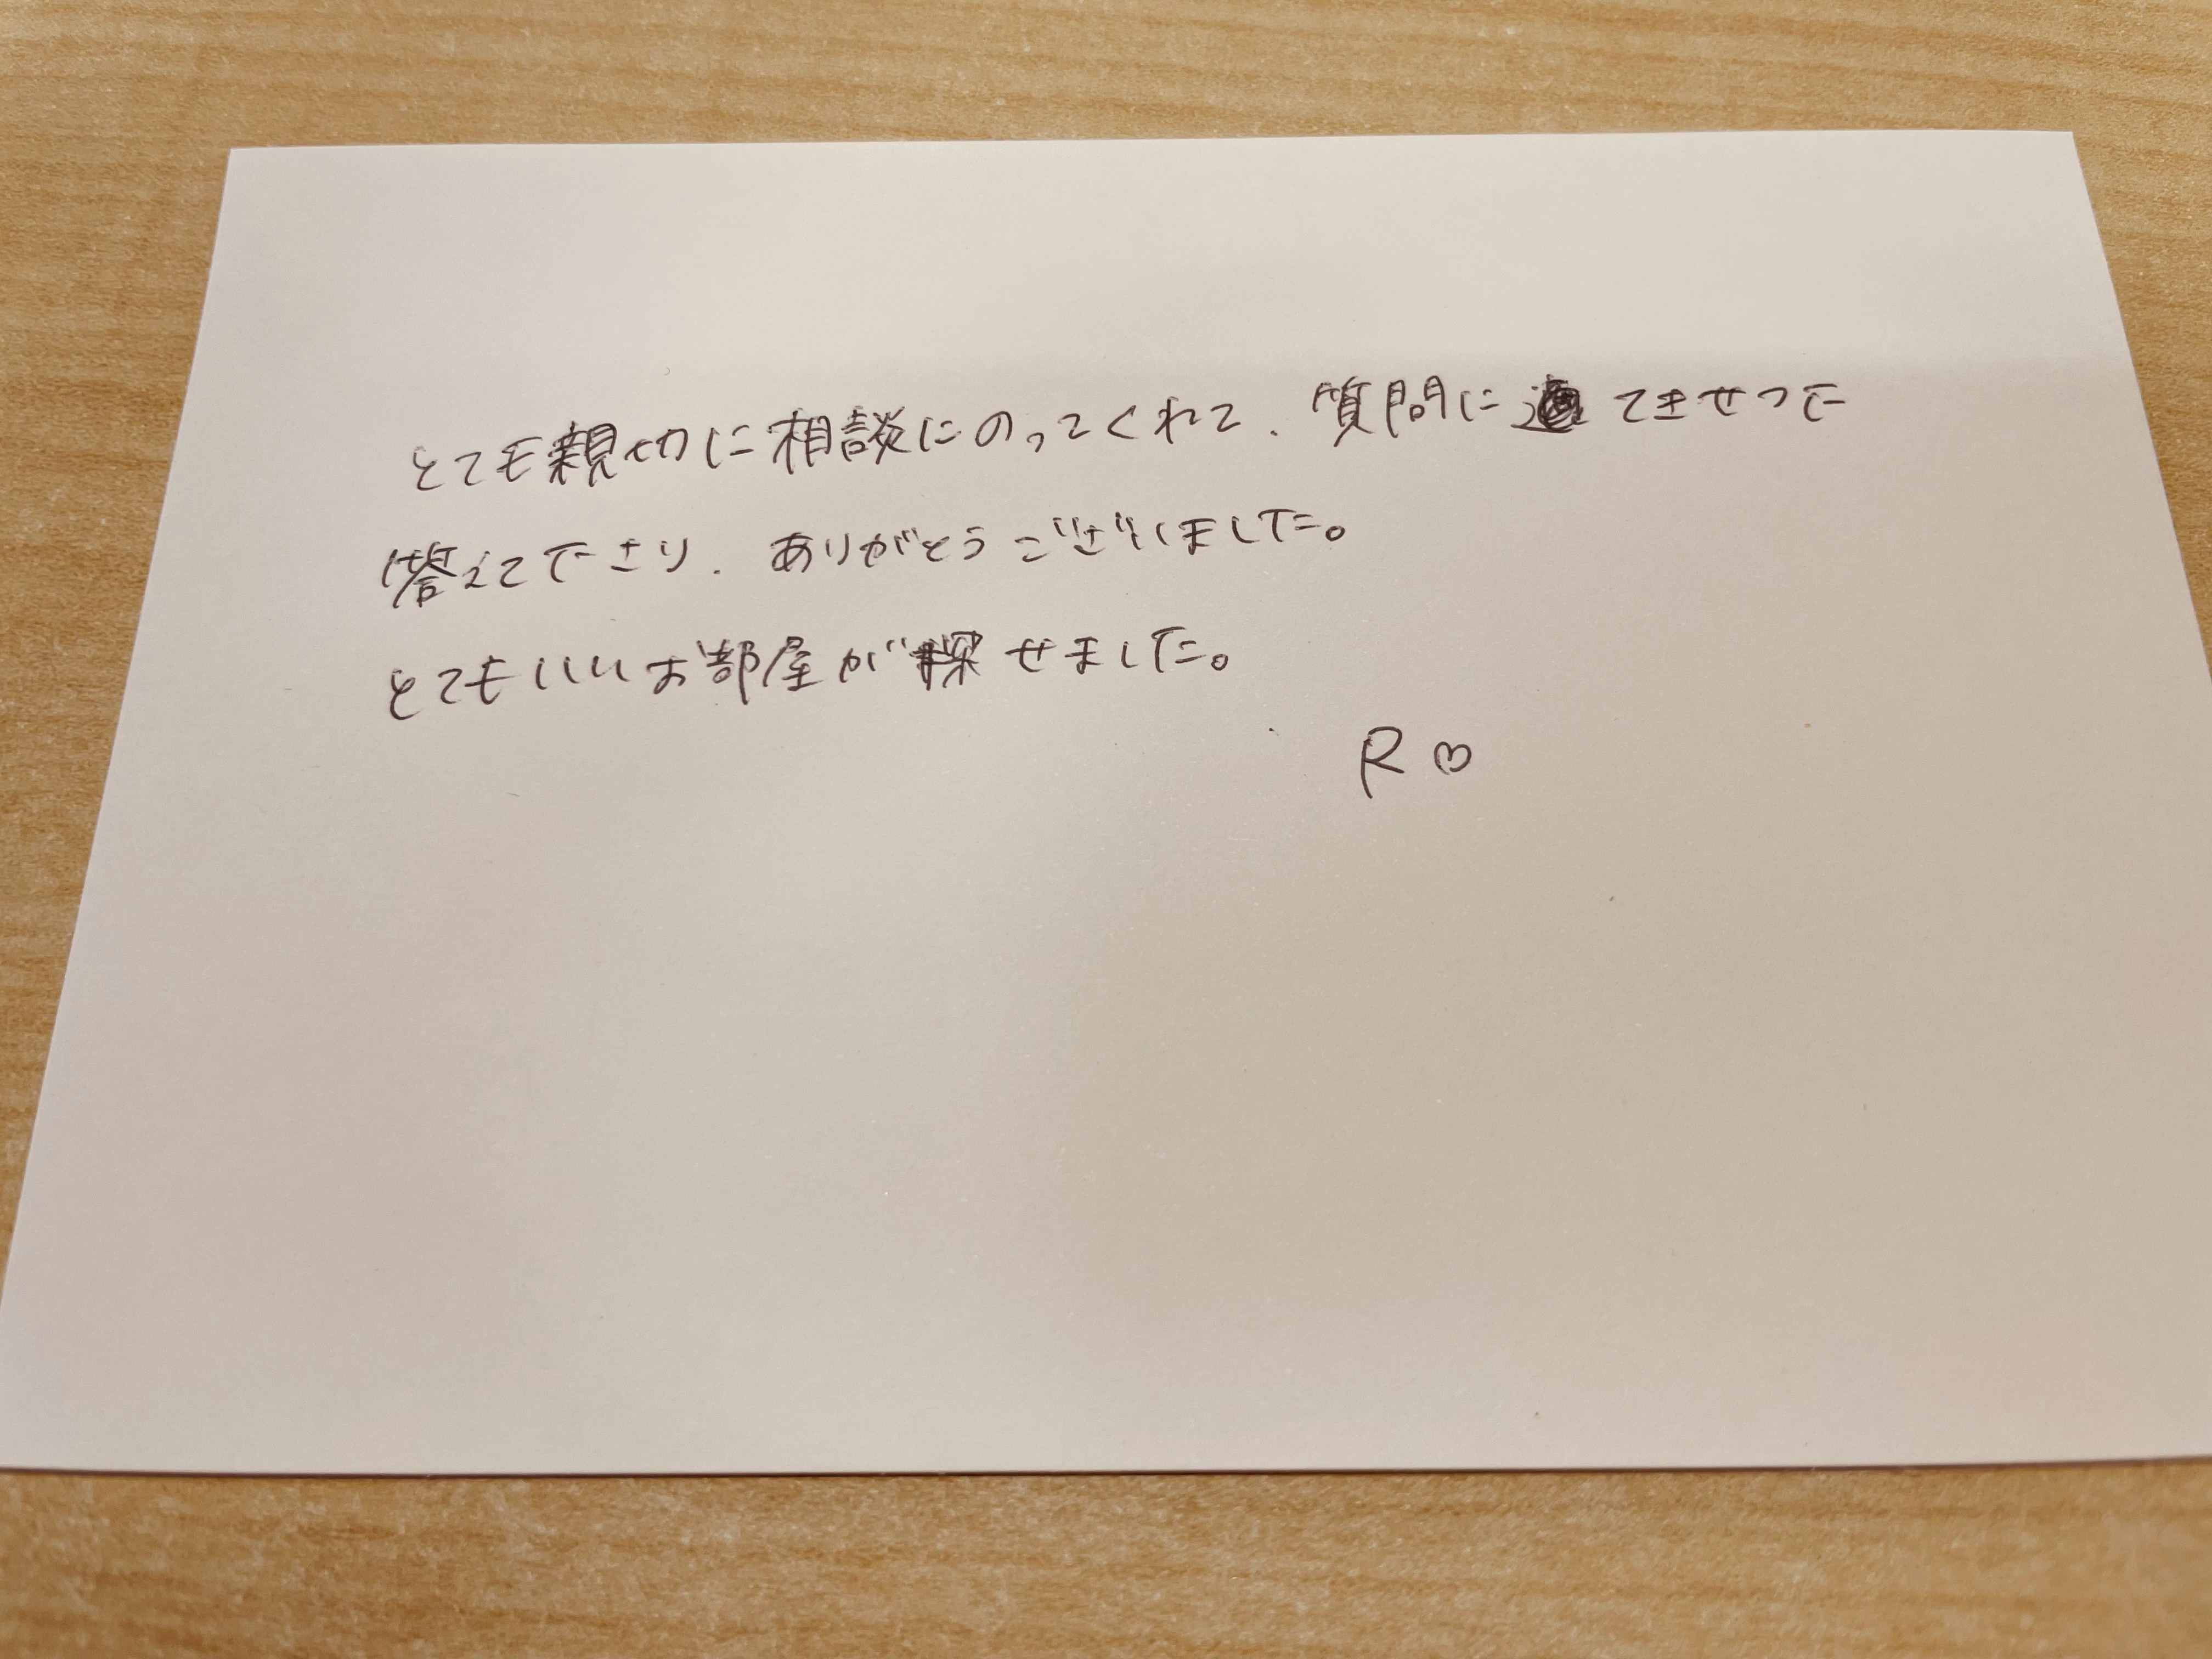 とても親切に相談にのってくれて、質問に てきせつに
答えて下さり、ありがとうございました。
とてもいいお部屋が探せました。
R♡